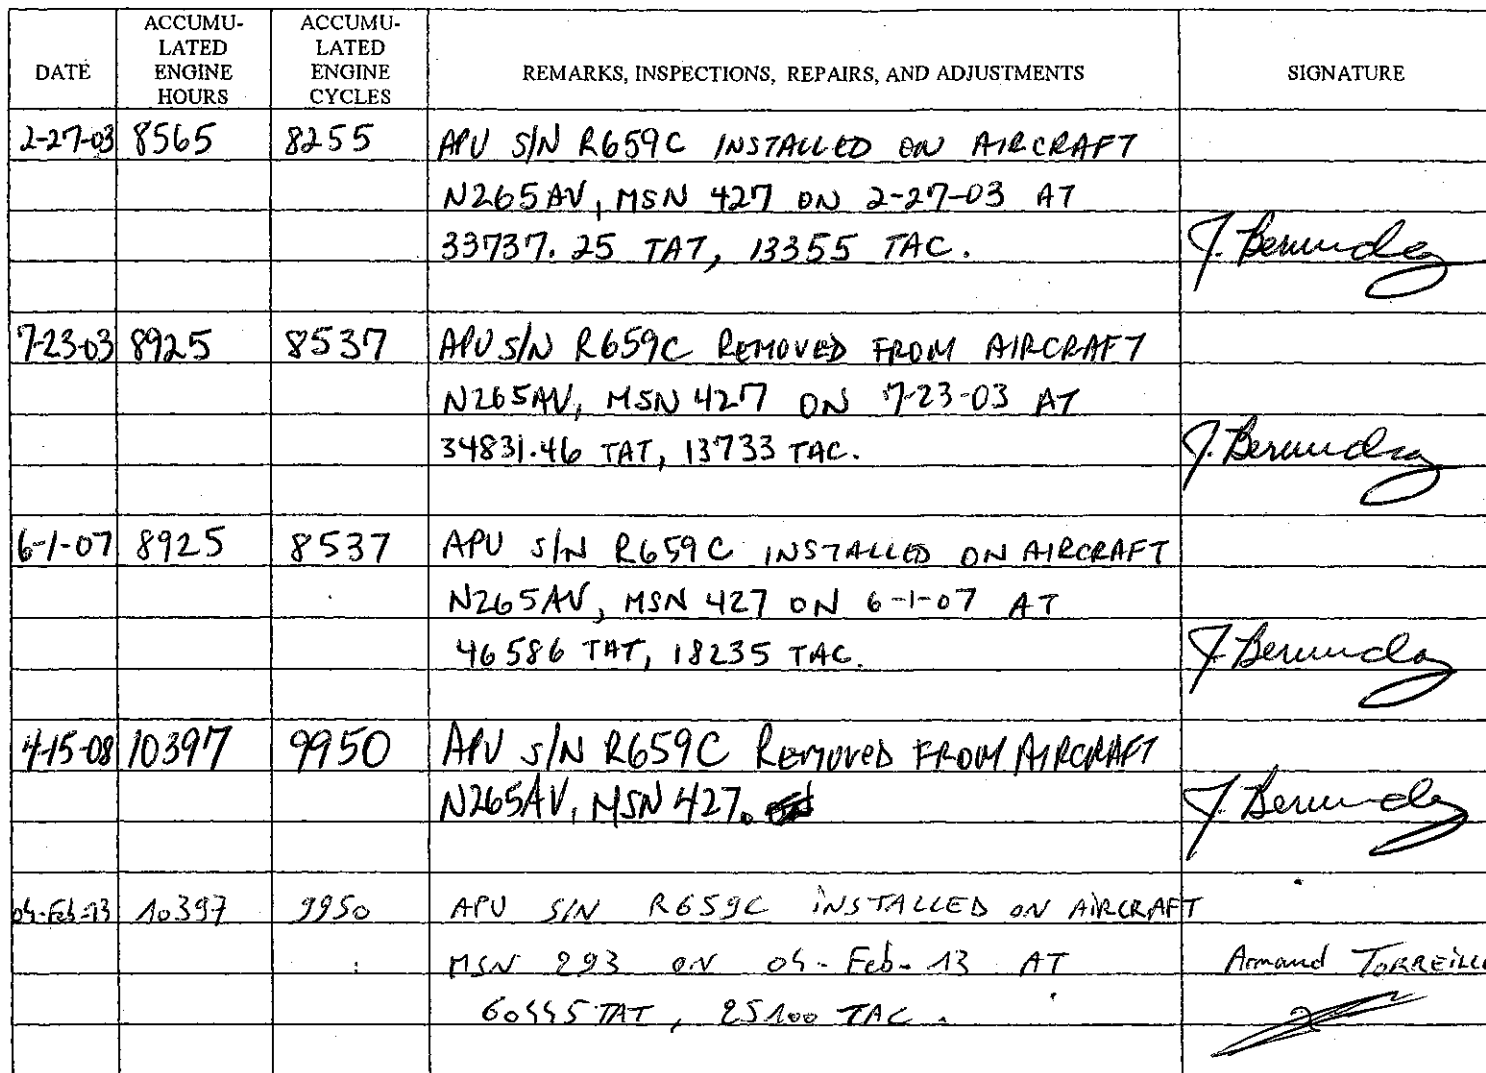 DATE
ACCUMU-
LATED
ENGINE
HOURS
ACCUMU-
LATED
ENGINE
CYCLES
REMARKS, INSPECTIONS, REPAIRS, AND ADJUSTMENTS
SIGNATURE
2-27-03 8565 8255 APU S/N R659C INSTALLED ON AIRCRAFT
N265AV, MSN 427 ON 2-27-03 AT
33737.25 TAT, 13355 TAC. J. Bermudez
7-23-03 8925 8537 APU S/N R659C REMOVED FROM AIRCRAFT
N265AV, MSN 427 ON 7-23-03 AT
34831.46 TAT, 13733 TAC. J. Bermudez
6-1-07 8925 8537 APU S/N R659C INSTALLED ON AIRCRAFT
N265AV, MSN 427 ON 6-1-07 AT
46586 TAT, 18235 TAC. J. Bermudez
4-15-08 10397 9950 APU S/N R659C REMOVED FROM AIRCRAFT
N265AV, MSN 427. J. Bermudez
10397 9950 APU S/N R659C INSTALLED ON AIRCRAFT
MSN 293 ON Feb-13 AT Armand TORREILLE
TAT, 25100 TAC.